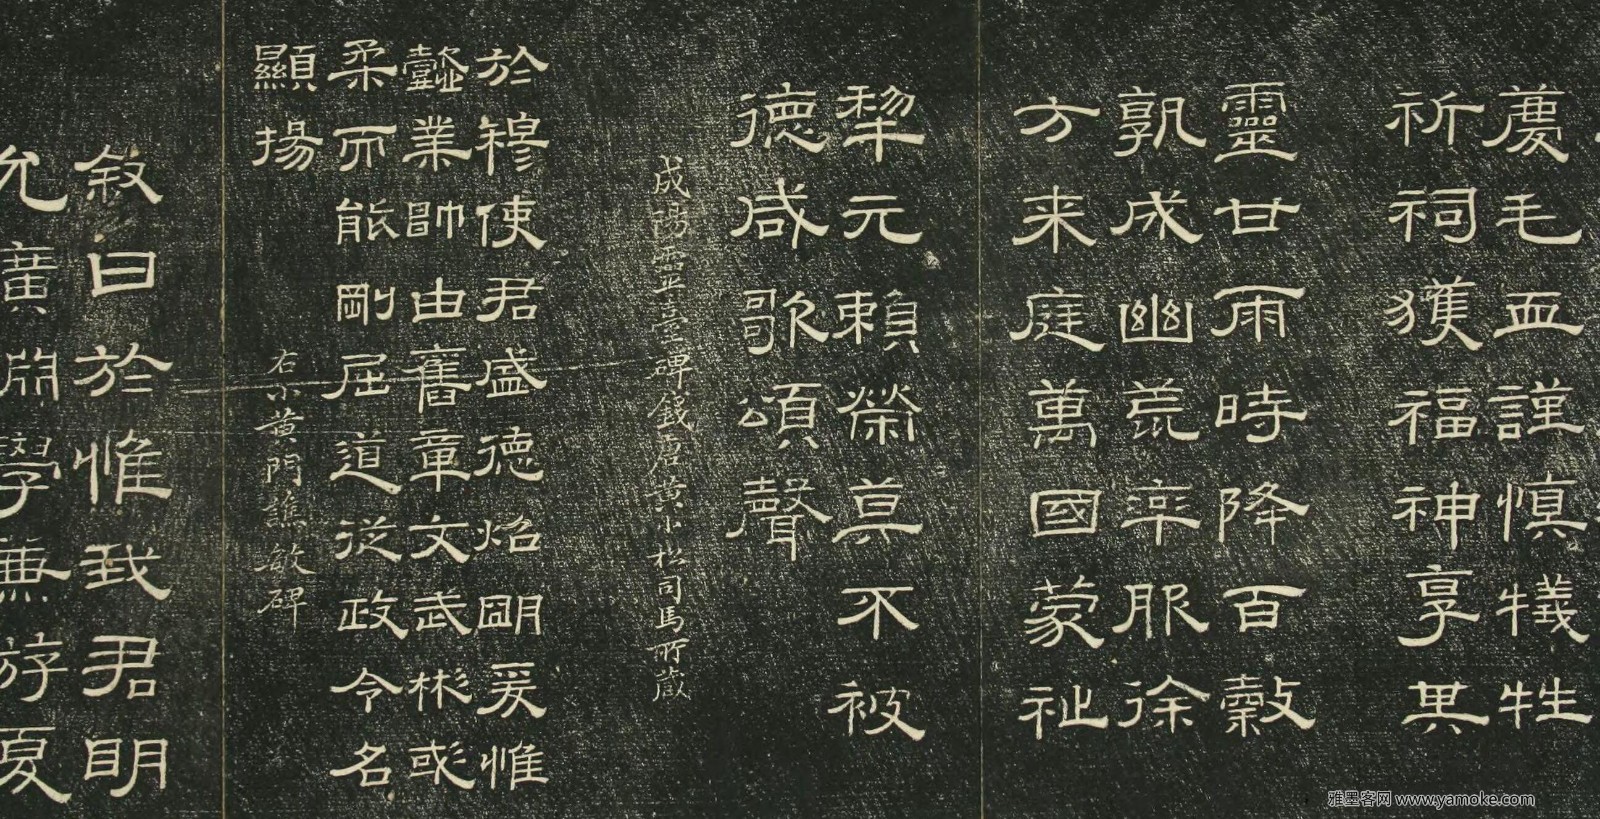 慶毛血謹慎犧牲
祈祠獲福神享其
靈甘雨時降百穀
孰成幽荒率服徐
方来庭萬國蒙祉
犂元賴榮莫不被
德咸歌頌聲
成陽靈臺碑錢唐黄小松司馬所藏
於穆使君盛德炤朙爰惟
懿業朙帥由舊章文武彬彧
柔而能剛屈道從政令名
顯揚
右小黄門譙敏碑
敘曰於惟我君明
允廣淵學兼游夏
雅墨客网 www.yamoke.com